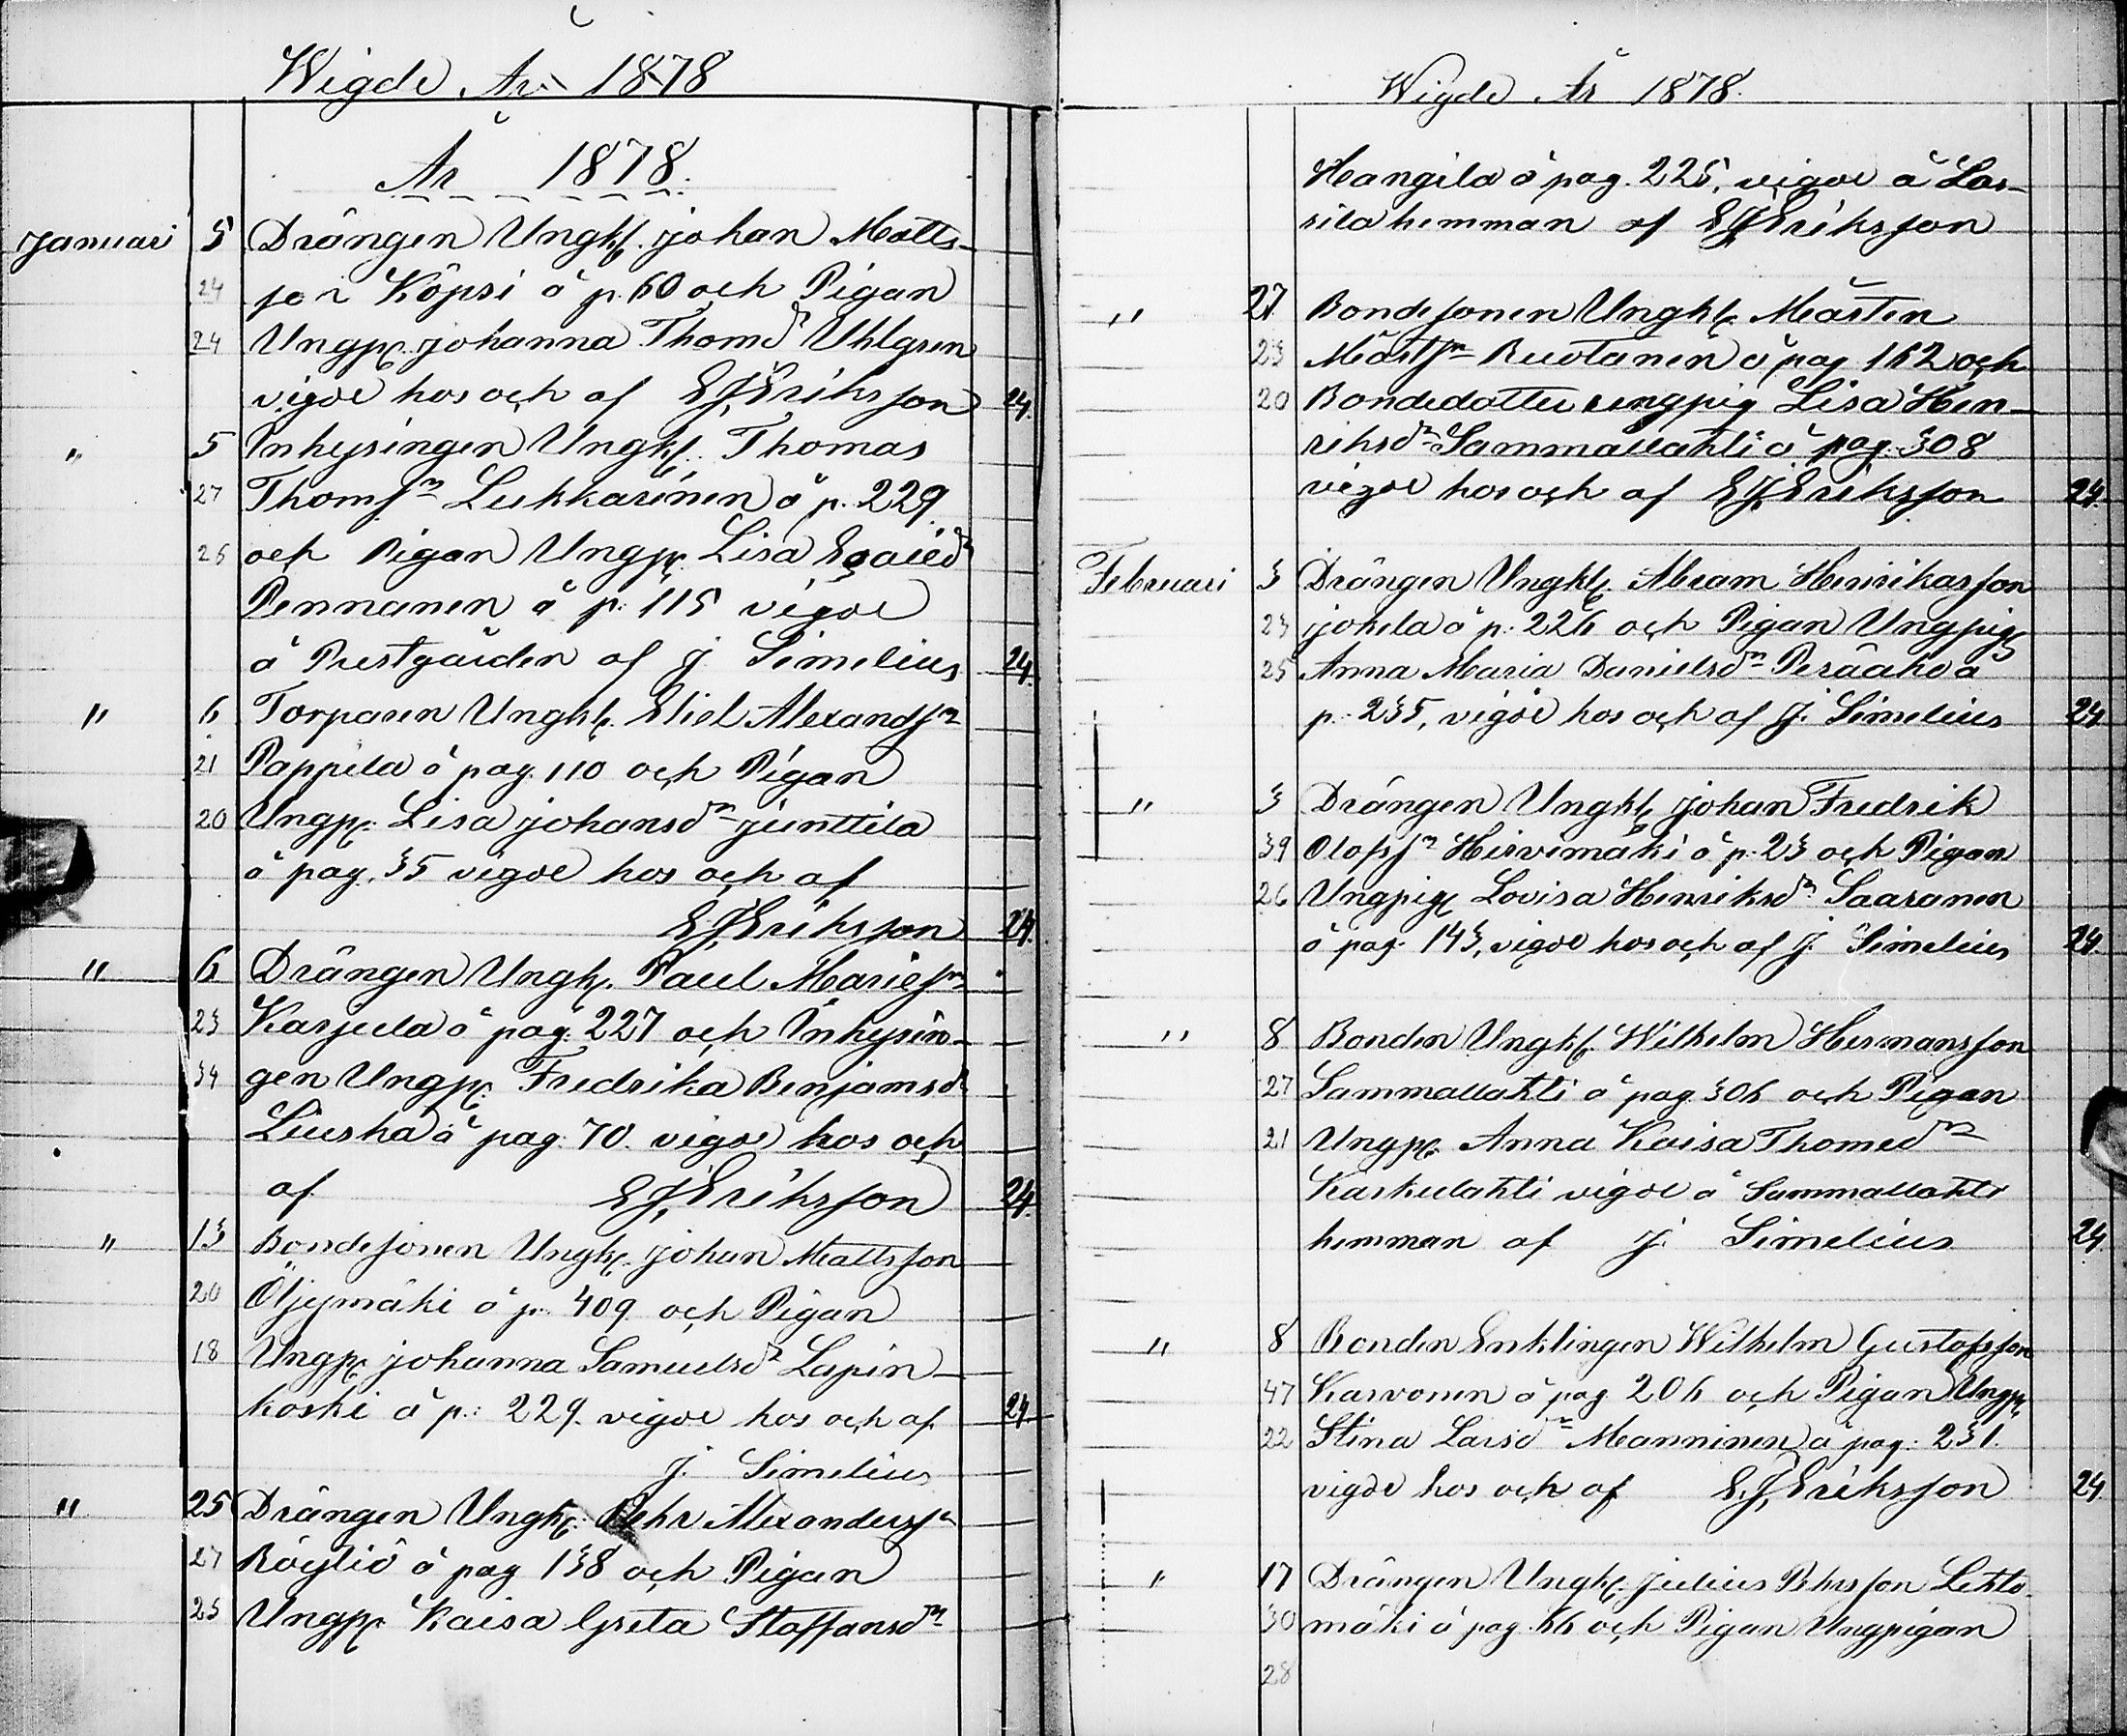 Wigde År 1878
År 1878.
Januari 5 Drängen Ungk. Johan Matts-
24 son Köpsi å p. 60 och Pigan
24 Ungp. Johanna Thomdr Uhlgren
vigde hos och af E J Eriksson 24.
" 5 Inhysingen Ungk. Thomas
27 Thomsn Lukkarinen å p. 229.
26 och Pigan Ungp. Lisa Esaiedr
Pennanen å p. 115 vigde
å Prestgården af J. Simelius 24.
" 6 Torparen Ungk. Eliel Alexandsn
21 Pappila å pag. 110 och Pigan
20 Ungp. Lisa Johansdr Junttila
å pag. 35 vigde hos och af
E J Eriksson 24.
" 6 Drängen Ungk. Paul Mariesn
23 Karjula å pag. 227 och Inhysin-
34 gen Ungp. Fredrika Benjamsdr
Liuska å pag. 70. vigde hos och
af E J Eriksson 24.
" 13 Bondesonen Ungk. Johan Mattsson
20 Öljymäki å p. 409 och Pigan
18 Ungp. Johanna Samuelsdr Lapin-
koski å p.: 229. vigde hos och af 24
J. Simelius
" 25 Drängen Ungk. Pehr Alexanderssn
27 Röyliö å pag 138 och Pigan
25 Ungp. Kaisa Greta Staffansdr
Wigde År 1878.
Hangila å pag. 225, vigde å Las-
sila hemman af E J Eriksson
" 27. Bondesonen Ungk. Mårten
23 Mårtsn Ruotanen å pag 162 och
20 Bondedotter ungpig Lisa Hen-
riksdr Sammallahti å pag. 308
vigde hos och af E J Eriksson 24.
Februari 3 Drängen Ungk. Abram Henriksson
23 Jokela å p. 226 och Pigan Ungpig
25 Anna Maria Danielsdr Peräaho å
p. 235, vigde hos och af J. Simelius 24
" 3 Drängen Ungk. Johan Fredrik
39 Olofsn Hirvimäki å p. 23 och Pigan
26 Ungpig Lovisa Henriksdr Saaranen
å pag. 143, vigde hos och af J. Simelius 24.
" 8 Bonden Ungk. Wilhelm Hermansson
27 Sammallahti å pag 306 och Pigan
21 Ungp. Anna Kaisa Thomedr
Karkulahti vigde å Sammallahti
hemman af J. Simelius 24.
" 8 Bonden Enklingen Wilhelm Gustafsson
47 Karvonen å pag 206 och Pigan Ungp.
22 Stina Larsdr Manninen å pag: 231.
vigde hos och af E. J. Eriksson 24
" 17 Drängen Ungk. Julius Pehrsson Lehto-
30 mäki å pag. 66 och Pigan Ungpigan
28